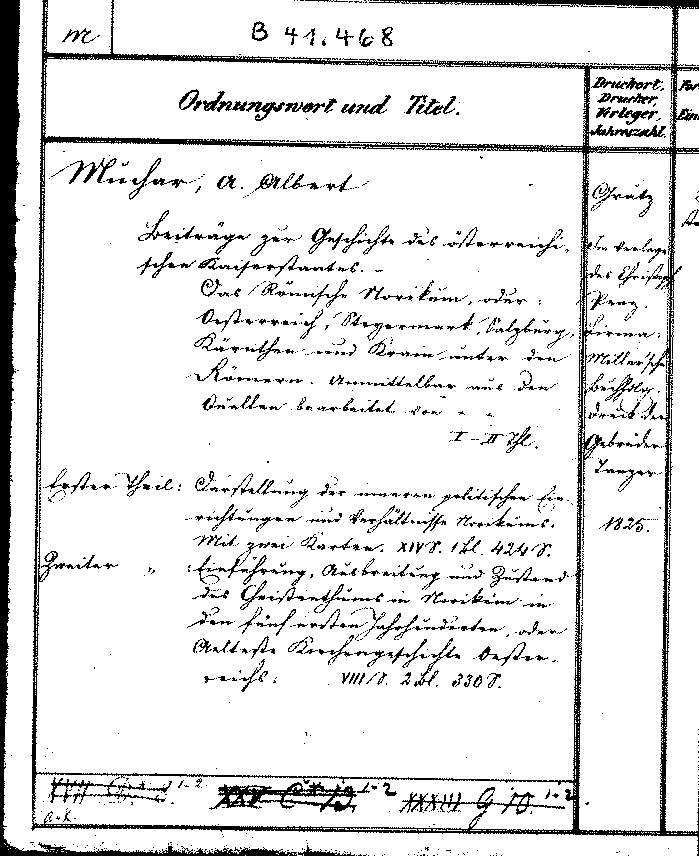 m
B 41.468
Ordnungswort und Titel.
Druckort,
Drucker,
Verleger,
Jahrszahl.
For
Ein
Muchar, A. Albert
Beiträge zur Geschichte des österreichi-
schen Kaiserstaates. -
Das Römische Norikum, oder:
Oesterreich, Steyermark, Salzburg,
Kärnthen und Krain unter den
Römern. Unmittelbar aus den
Quellen bearbeitet von - -
I-II Thl.
Erster Theil: Darstellung der inneren politischen Ein-
richtungen und Verhältnisse Norikums.
Mit zwei Karten. XIV S. 1 Bl. 424 S.
Zweiter " : Einführung, Ausbreitung und Zustand
des Christenthums in Norikum in
den fünf ersten Jahrhunderten, oder
Aelteste Kirchengeschichte Oester-
reichs: VIII/S. 2 Bl. 330 S.
Grätz
Im Verlage
des Christoph
Penz.
Firma:
Miller'sche
Buchhdlg.
Druck der
Gebrüder
Tanzer
1825.
1-2
XXV C* 13 1-2
XXXIII G 10. 1-2